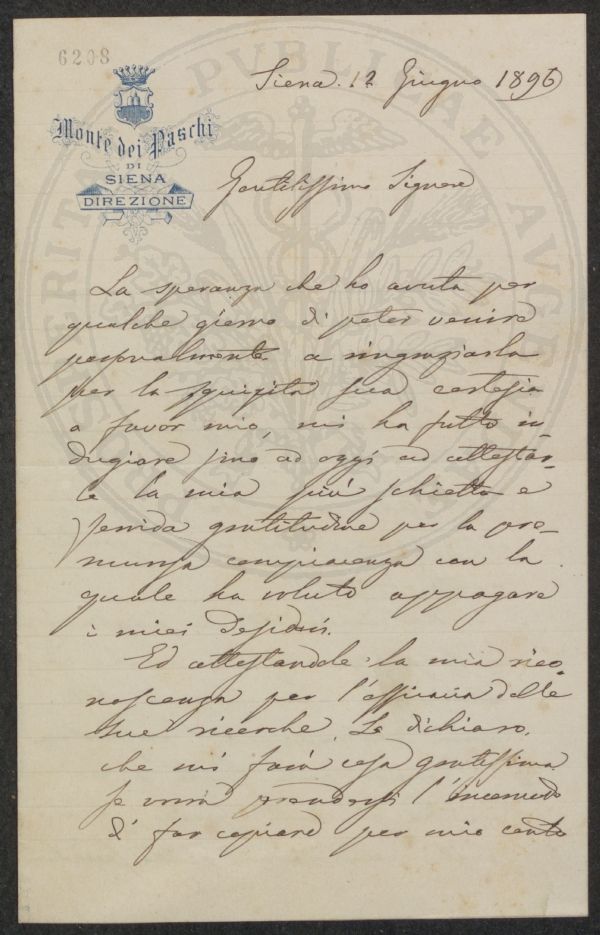 6208
Monte dei Paschi
DI
SIENA
DIREZIONE
Siena. 12 Giugno 1896
Gentilissimo Signore
La speranza che ho avuta per
qualche giorno di poter venire
personalmente a ringraziarla
per la squisita sua cortesia
a favor mio, mi ha fatto in-
dugiare fino ad oggi ad attestar-
le la mia più schietta e
fervida gratitudine per la pre-
murosa compiacenza con la
quale ha voluto appagare
i miei desideri.
Ed attestandole la mia rico-
noscenza per l'efficacia delle
sue ricerche, Le dichiaro,
che mi farà cosa gratissima
se vorrà prendersi l'incomodo
di far copiare per mio conto
PUBLICAE